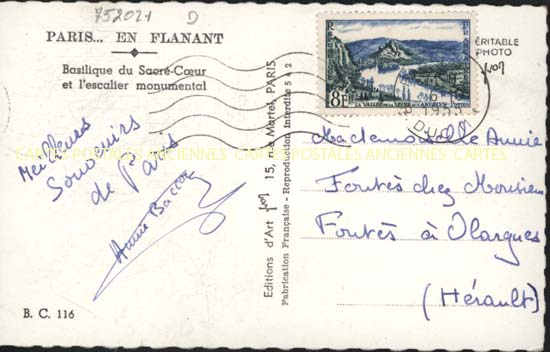 752021 D
PARIS... EN FLANANT
Basilique du Sacré-Cœur
et l'escalier monumental
Meilleurs
Souvenirs
de Paris
B. C. 116
Editions d'Art yvon 15, rue Martel, PARIS
Fabrication Française - Reproduction interdite 5 à 2
FRANÇAISE
8F
LA VALLÉE DE LA SEINE AUX ANDELYS
ÉRITABLE
PHOTO
yvon
CARTES POSTALES ANCIENNES CARTES POSTALES ANCIENNES CARTES
Mademoiselle Annie
Fontés chez Monsieur
Fontés à Olargues
(Hérault)